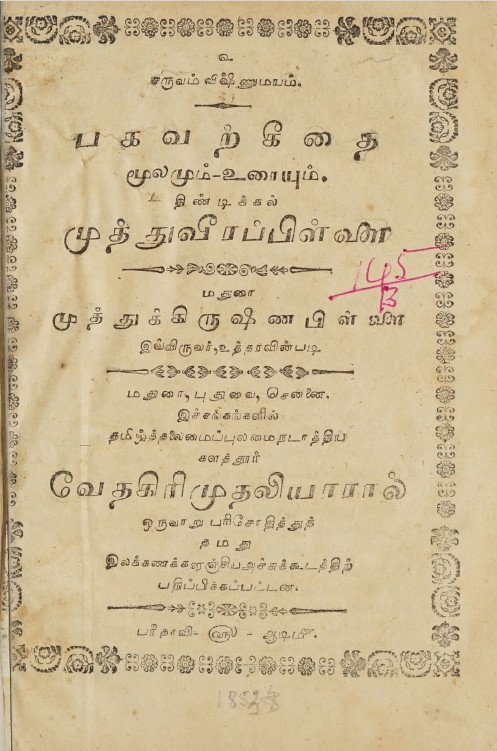 உ
சருவம் விஷ்ணுமயம்.
பகவற்கீதை
மூலமும்-உரையும்.
திண்டிக்கல்
முத்துவீரப்பிள்ளை
145
B
மதுரை
முத்துக்கிருஷ்ணபிள்ளை
இவ்விருவர், உத்தரவின்படி
மதுரை, புதுவை, சென்னை.
இச்சங்கங்களில்
தமிழ்த்தலைமைப்புலமைநடாத்திய
களத்தூர்
வேதகிரிமுதலியாரால்
ஒருவாறு பரிசோதித்துத்
தமது
இலக்கணக்களஞ்சியஅச்சுக்கூடத்திற்
பதிப்பிக்கப்பட்டன.
பரீதாவி- ௵ - ஆடி௴.